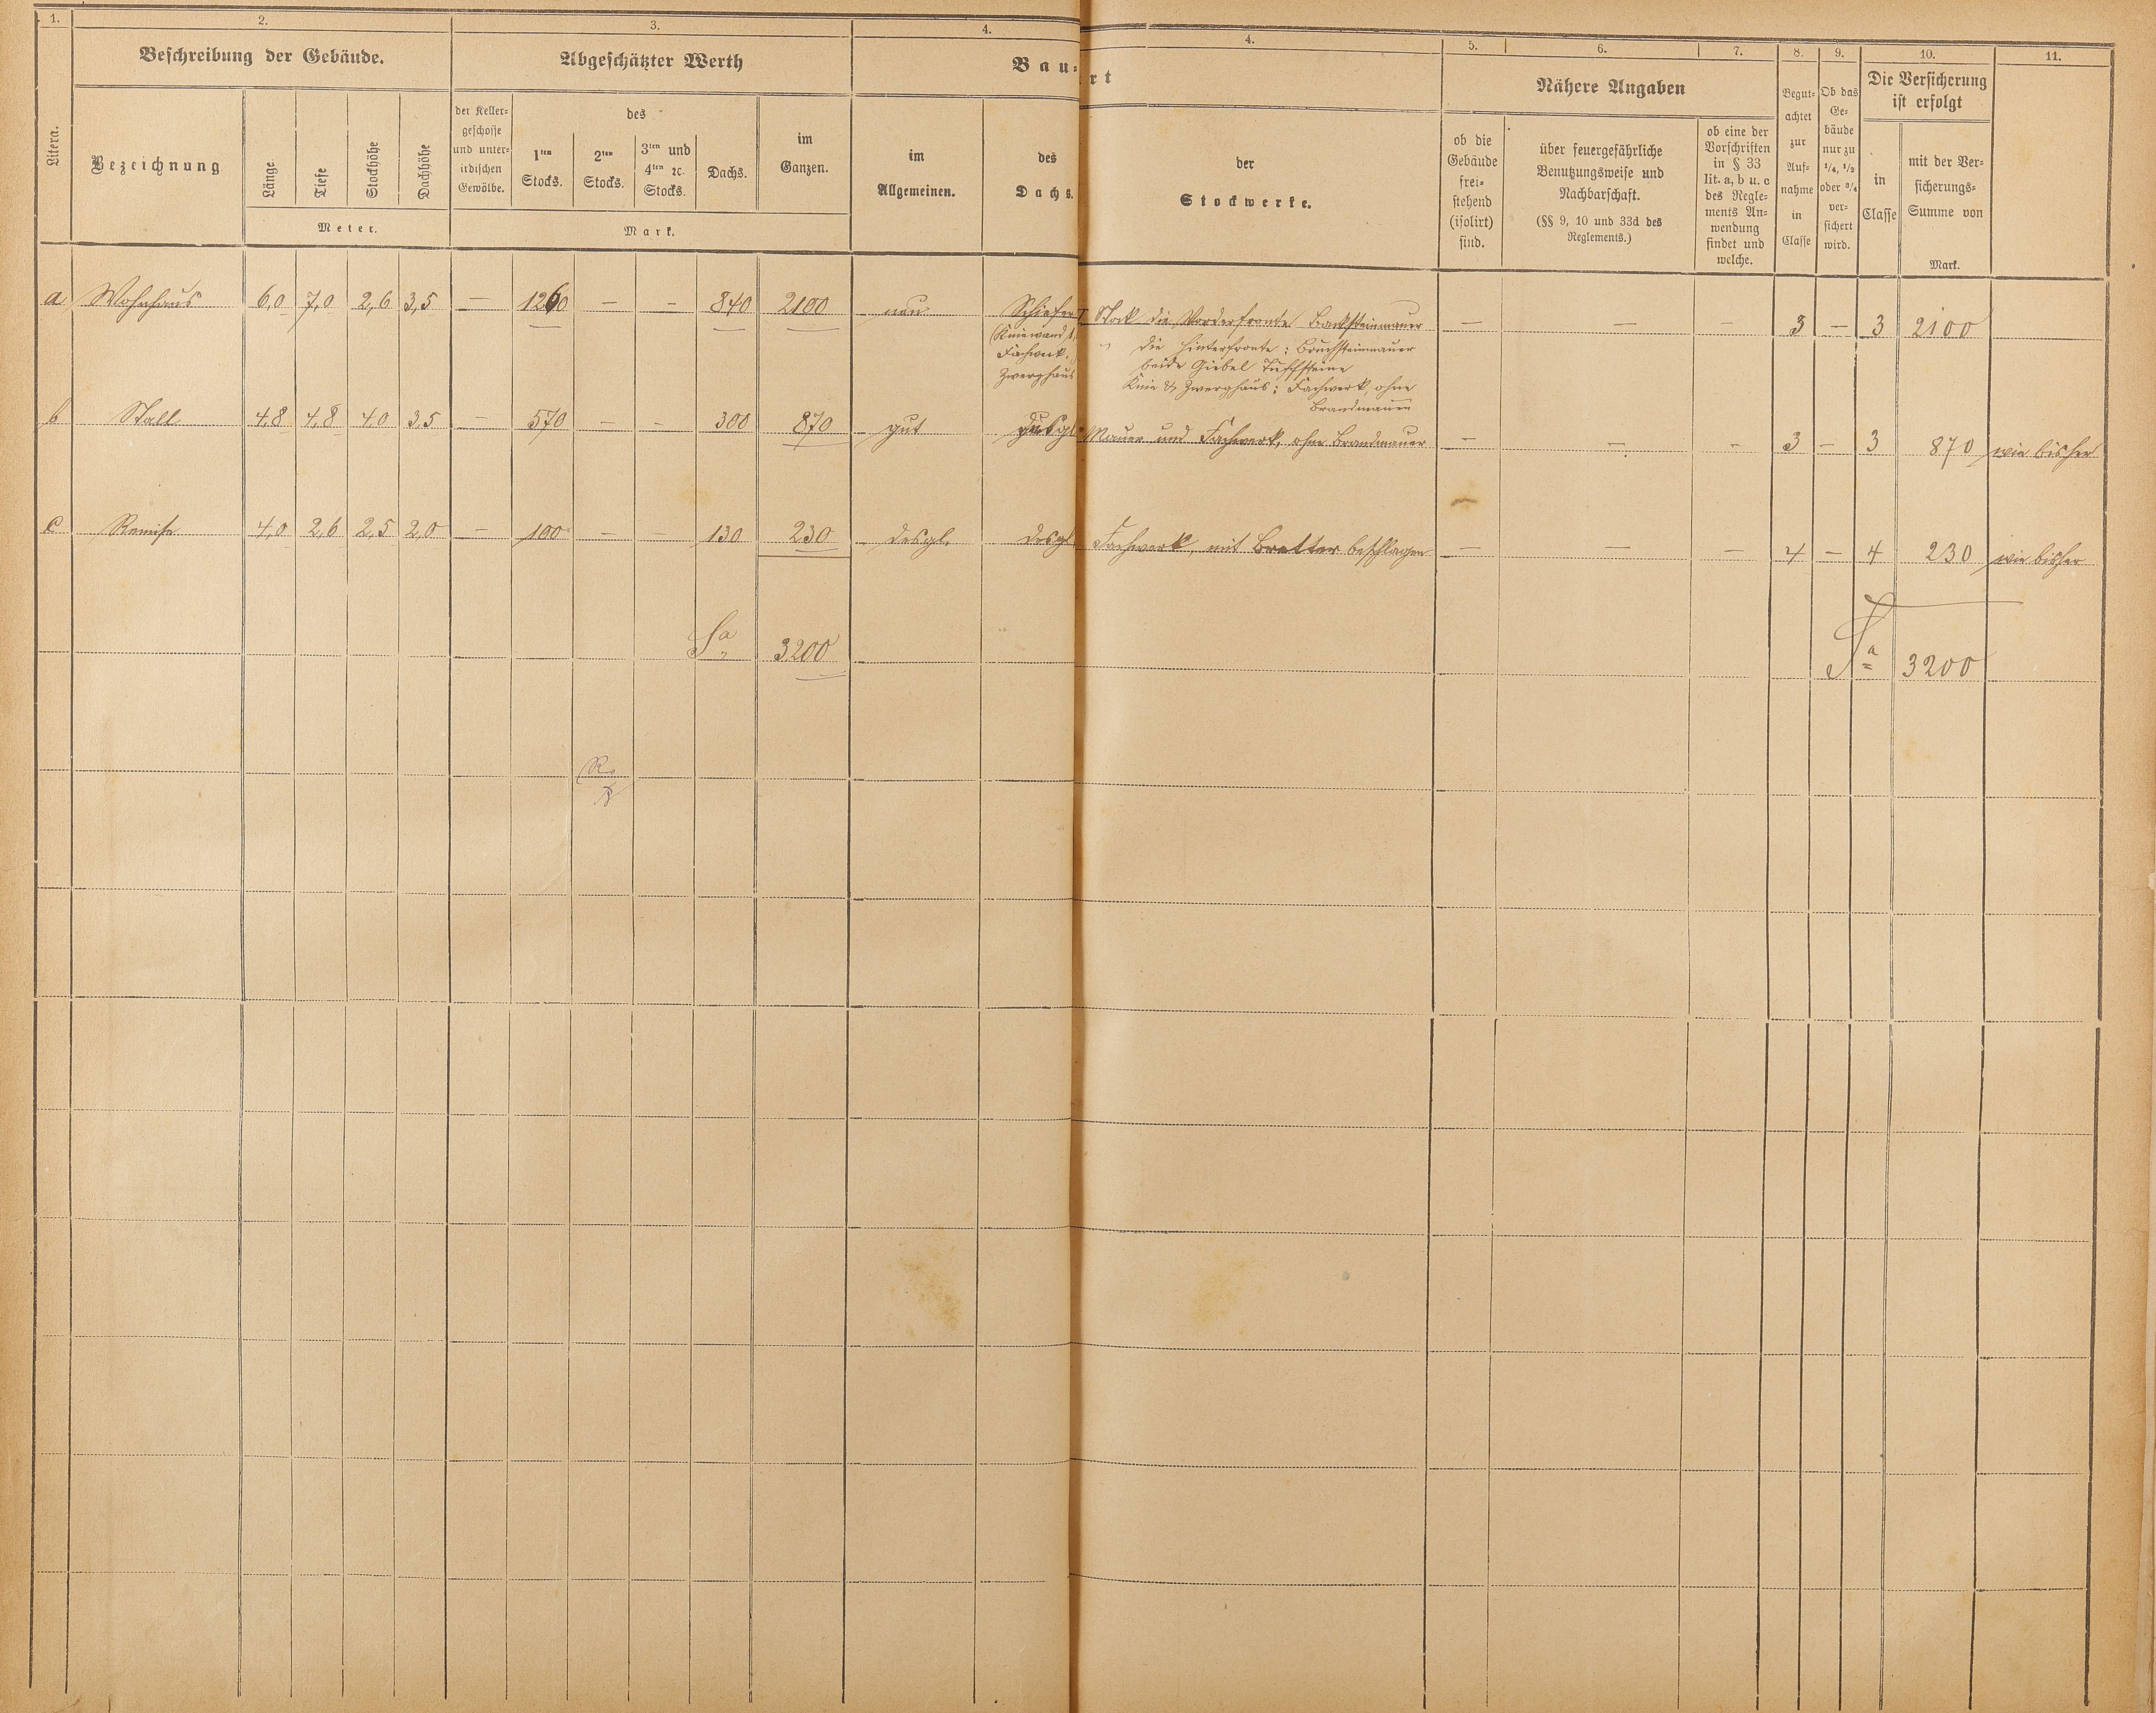 1. 2. 3. 4. 4. 5. 6. 7. 8. 9. 10. 11.
Litera.
Beschreibung der Gebäude.
Bezeichnung
Länge
Tiefe
Stockhöhe
Dachhöhe
Meter.
Abgeschätzter Werth
der Keller-
geschosse
und unter-
irdischen
Gewölbe.
des
1ten
Stocks.
2ten
Stocks.
3ten und
4ten ꝛc.
Stocks.
Dachs.
im
Ganzen.
Mark.
Bau-
im
Allgemeinen.
des
Dachs.
rt
der
Stockwerke.
Nähere Angaben
ob die
Gebäude
frei-
stehend
(isolirt)
sind.
über feuergefährliche
Benutzungsweise und
Nachbarschaft.
(§§ 9, 10 und 33d des
Reglements.)
ob eine der
Vorschriften
in § 33
lit. a, b u. c
des Regle-
ments An-
wendung
findet und
welche.
Begut-
achtet
zur
Auf-
nahme
in
Classe
Ob das
Ge-
bäude
nur zu
1/4, 1/2
oder 3/4
ver-
sichert
wird.
Die Versicherung
ist erfolgt
in
Classe
mit der Ver-
sicherungs-
Summe von
Mark.
a Wohnhaus 6,0 7,0 2,6 3,5 — 1260 — — 840 2100 neu Schiefer I Stock die Vorderfronte Backsteinmauer — — — 3 — 3 2100
(Kniewand &
Fachwerk.
Zwerghaus
" die Hinterfronte : Bruchsteinmauer
beide Giebel Tuffsteine
Knie & Zwerghaus : Fachwerk, ohne
Brandmauer
b Stall 4,8 4,8 4,0 3,5 — 570 — — 300 870 gut desgl Mauer und Fachwerk, ohne Brandmauer — — — 3 — 3 870 wie bisher
c Remise 4,0 2,6 2,5 2,0 — 100 — — 130 230 desgl. desgl Fachwerk, mit Bretter beschlagen — — — 4 — 4 230 wie bisher
Sa 3200 Sa 3200